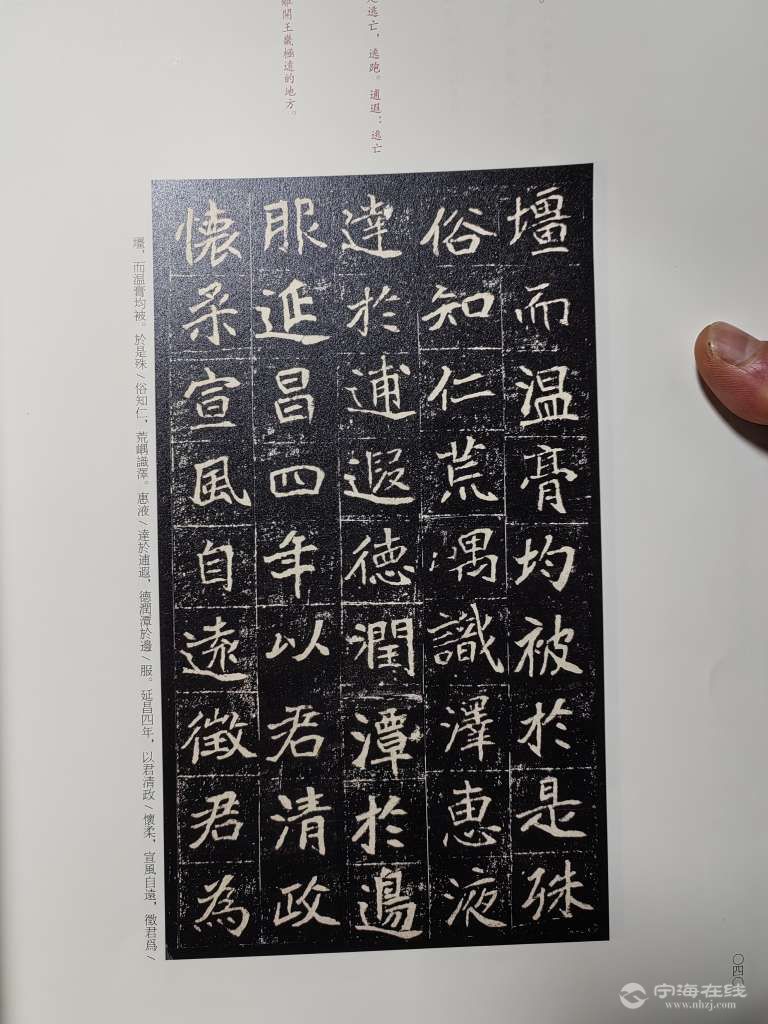 是逃亡，逃跑。逋遐：逃亡
離開王畿極遠的地方。
壃而温膏均被於是殊
俗知仁荒嵎識澤惠液
達於逋遐德潤潭於邊
服延昌四年以君清政
懷柔宣風自遠徵君為
壃，而温膏均被。於是殊／俗知仁，荒嵎識澤。惠液／達於逋遐，德潤潭於邊／服。延昌四年，以君清政／懷柔，宣風自遠，徵君爲／
〇四〇
宁海在线
www.nhzj.com